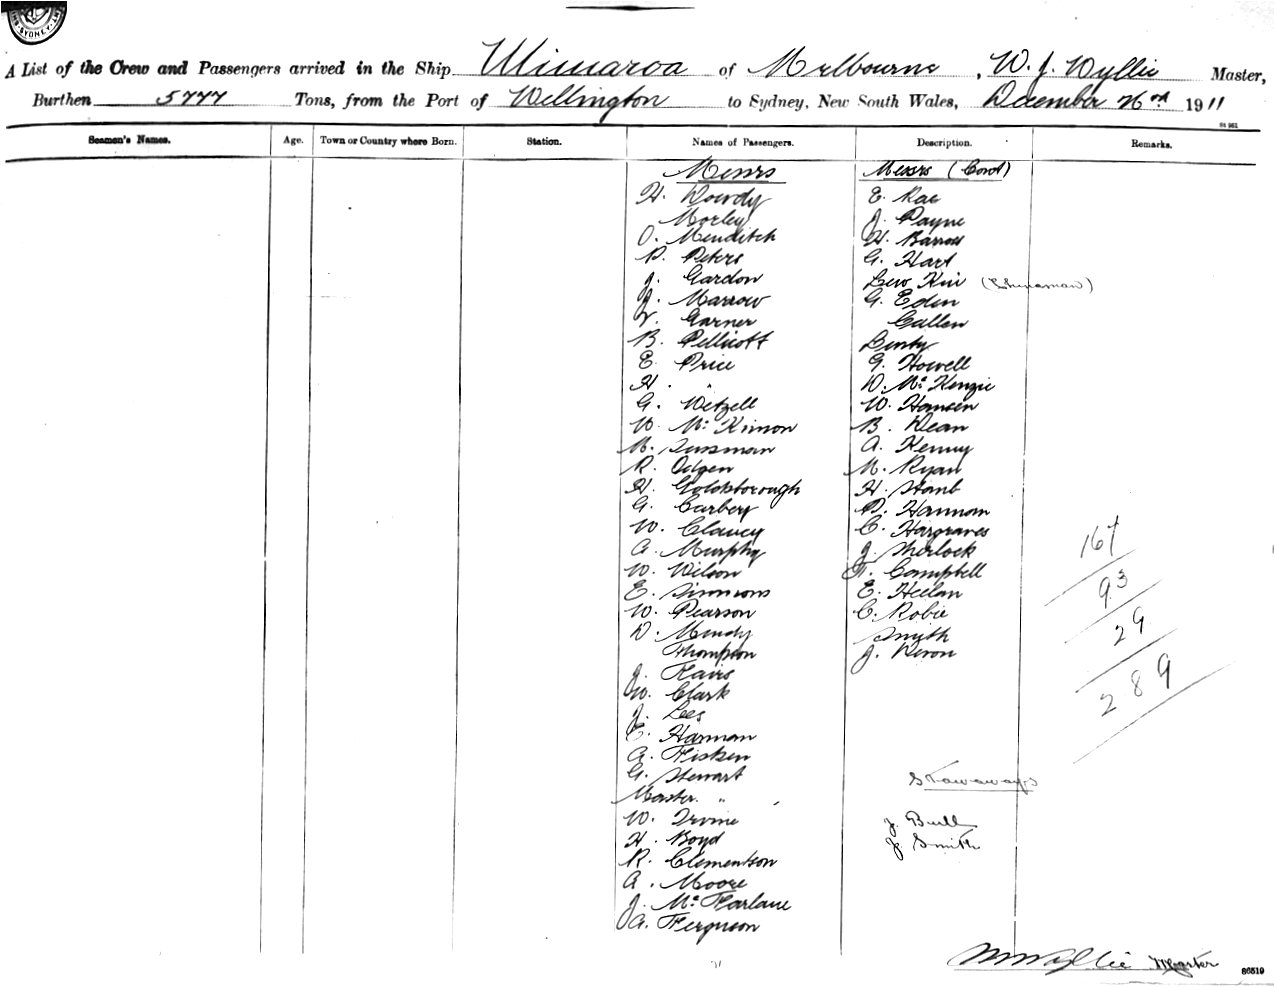 SYDNEY
A List of the Crew and Passengers arrived in the Ship Ulimaroa of Melbourne, W. J. Wyllie Master,
Burthen 5777 Tons, from the Port of Wellington to Sydney, New South Wales, December 26th 1911
Seamen's Names. Age. Town or Country where Born. Station. Names of Passengers. Description. Remarks.
Messrs
H. Dowdy
Morley
O. Menditch
P. Peters
J. Gardon
J. Marrow
Garner
B. Pellicott
E. Price
H. "
G. Wetzell
W. McKinnon
M. Sussman
R. Odgen
H. Goldsborough
G. Carbery
W. Clancy
A. Murphy
W. Wilson
E. Simmons
W. Pearson
D. Mundy
Thompson
J. Fairs
W. Clark
J. Lees
E. Harman
A. Fisken
G. Stewart
Master "
W. Irvine
H. Boyd
R. Clementson
A. Moore
J. McFarlane
A. Ferguson
Messrs (Cont)
E. Rae
J. Payne
H. Barrow
G. Hart
Lew Kin (Chinaman)
G. Eden
Cullen
Benty
G. Howell
D. McKenzie
W. Hansen
B. Dean
A. Kenny
M. Ryan
H. Stanb
P. Hannan
C. Hargraves
J. Sherlock
Campbell
E. Heelan
C. Robie
Smyth
J. Devon
167
93
29
289
Stowaways
J. Bull
J. Smith
W J Wyllie Master
86519